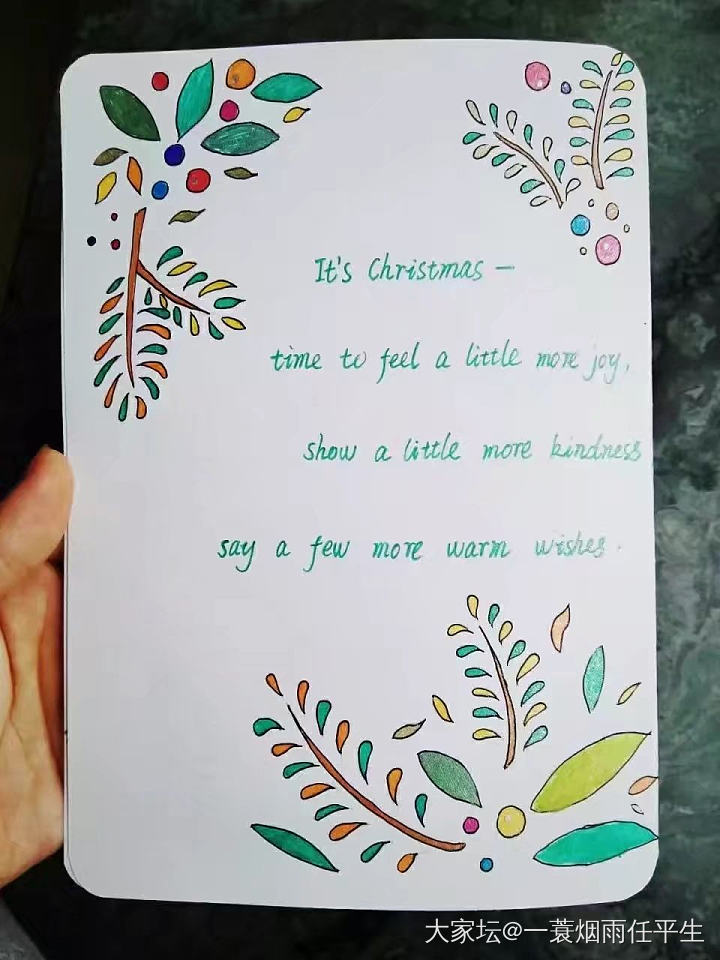 It's Christmas —
time to feel a little more joy,
show a little more kindness
say a few more warm wishes.
大家坛@一蓑烟雨任平生